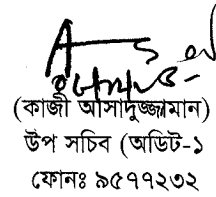 (কাজী আসাদুজ্জামান)
উপ সচিব (অডিট-১
ফোনঃ ৯৫৭৭২৩২